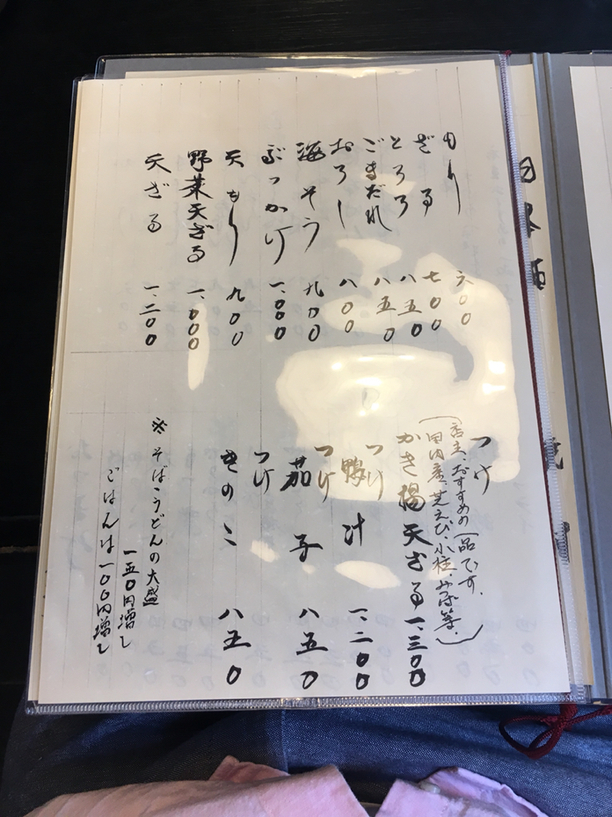 もり 六〇〇
ざる 七〇〇
とろろ 八五〇
ごまだれ 八五〇
おろし 八〇〇
海そう 九〇〇
ぶっかけ 一、〇〇〇
天もり 九〇〇
野菜天ざる 一、〇〇〇
天ざる 一、二〇〇
つけ
(店主、おすすめの一品です。
国内産、芝えび、小柱、みつば等、)
かき揚天ざる 一、三〇〇
つけ
鴨汁 一、二〇〇
つけ
茄子 八五〇
つけ
きのこ 八五〇
※そば・うどんの大盛
一五〇円増し
ごはんは一〇〇円増し
日本酒